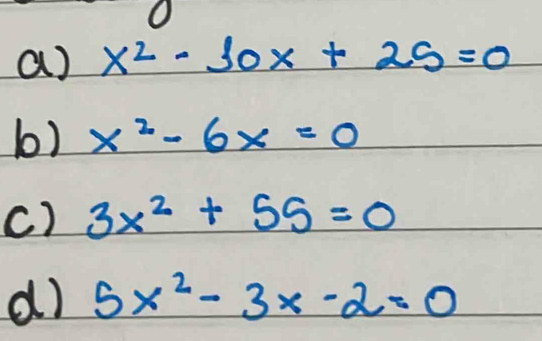 a) x² - 10x + 25 = 0
b) x² - 6x = 0
c) 3x² + 55 = 0
d) 5x² - 3x - 2 = 0